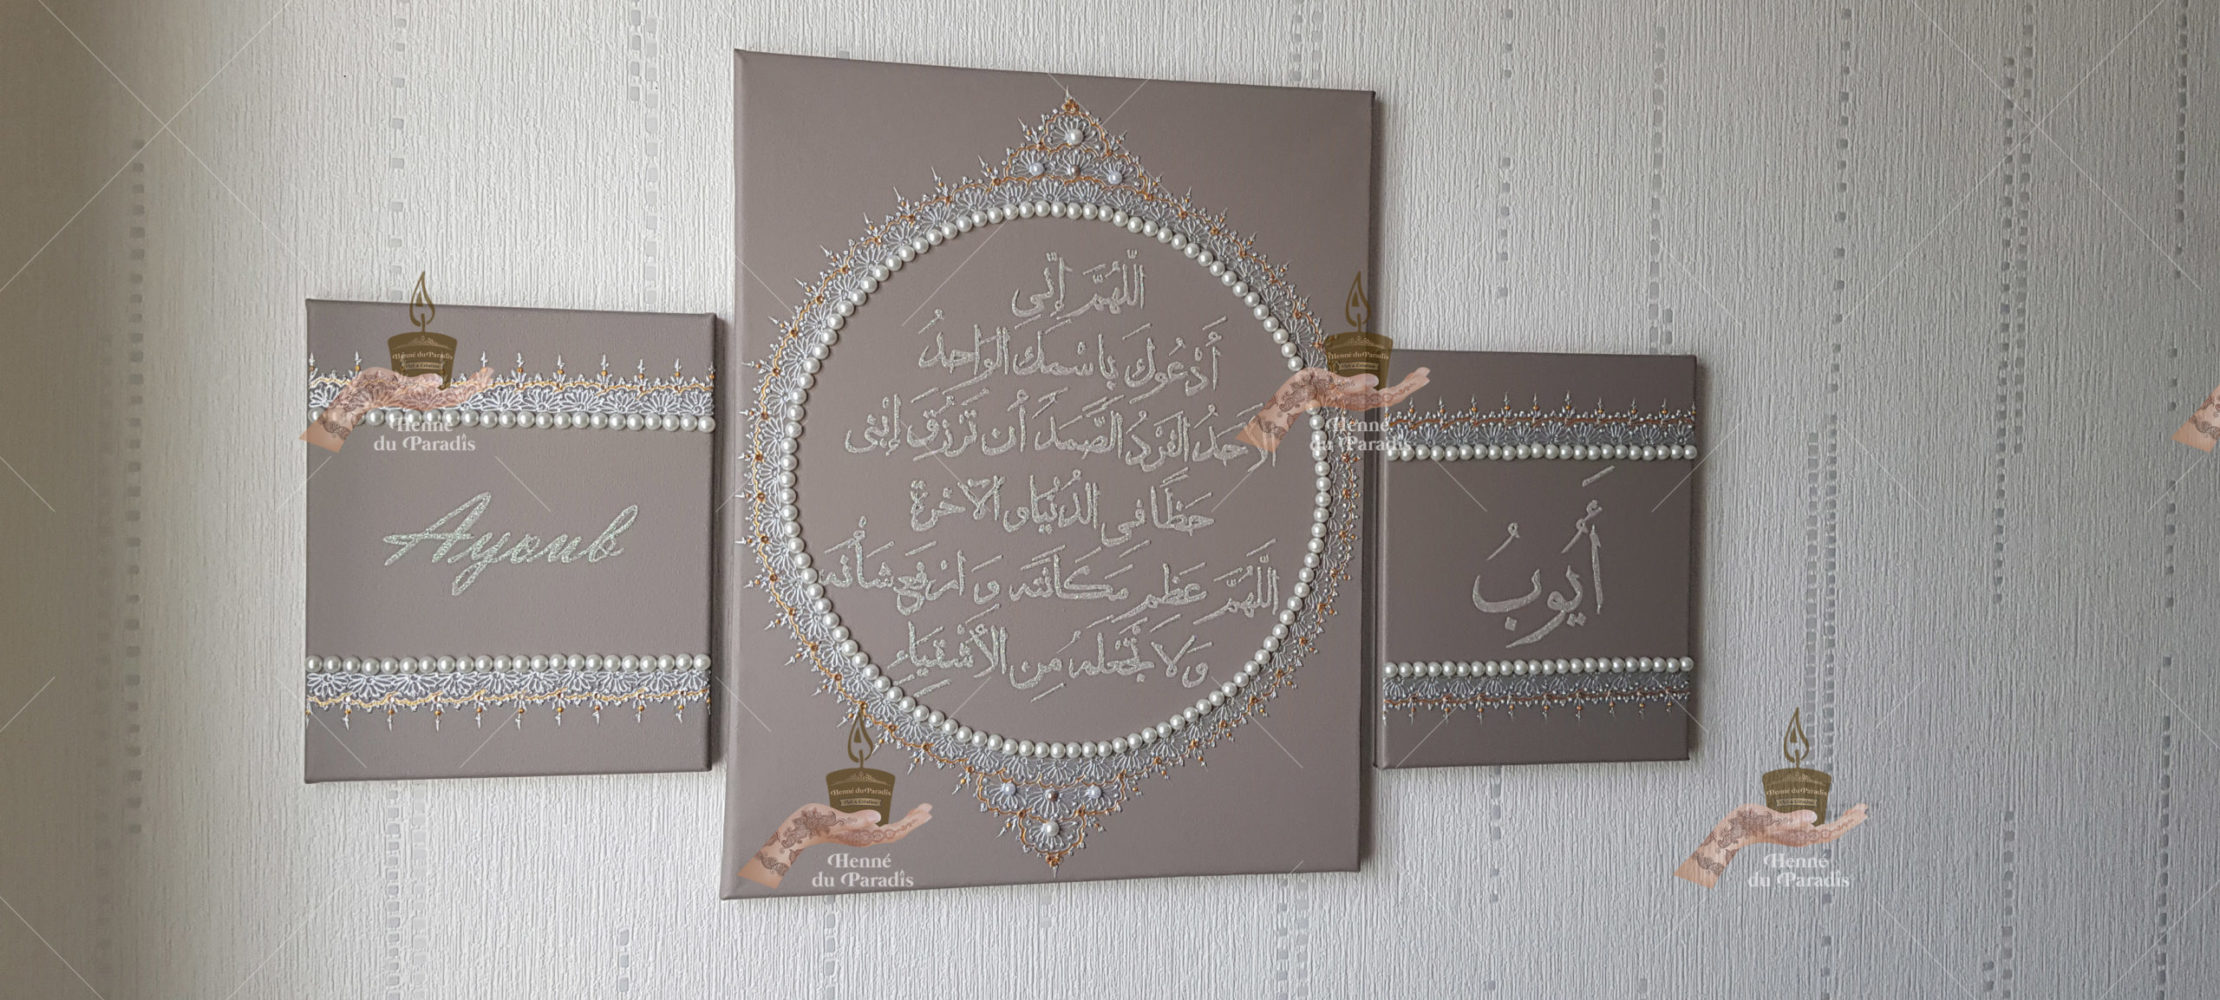 Ayoub
اللّهُمَّ إنّي
أَدْعُوكَ بِاسْمكَ الوَاحدُ
الأحَدُ الفَرْدُ الصَّمَدَ أن تَرْزُقَ إبْنِي
حَظًّا في الدُّنْيَا و الآخرَة
اللَّهُمَّ عَظّم مَكَانَتَه وَ ارْفَع شَأْنَه
وَلاَ تَجْعَلهُ مِن الأَشْقيَاءِ
أَيُوبُ
Henné
du Paradis
Henné
du Paradis
Henné
du Paradis
Henné
du Paradis